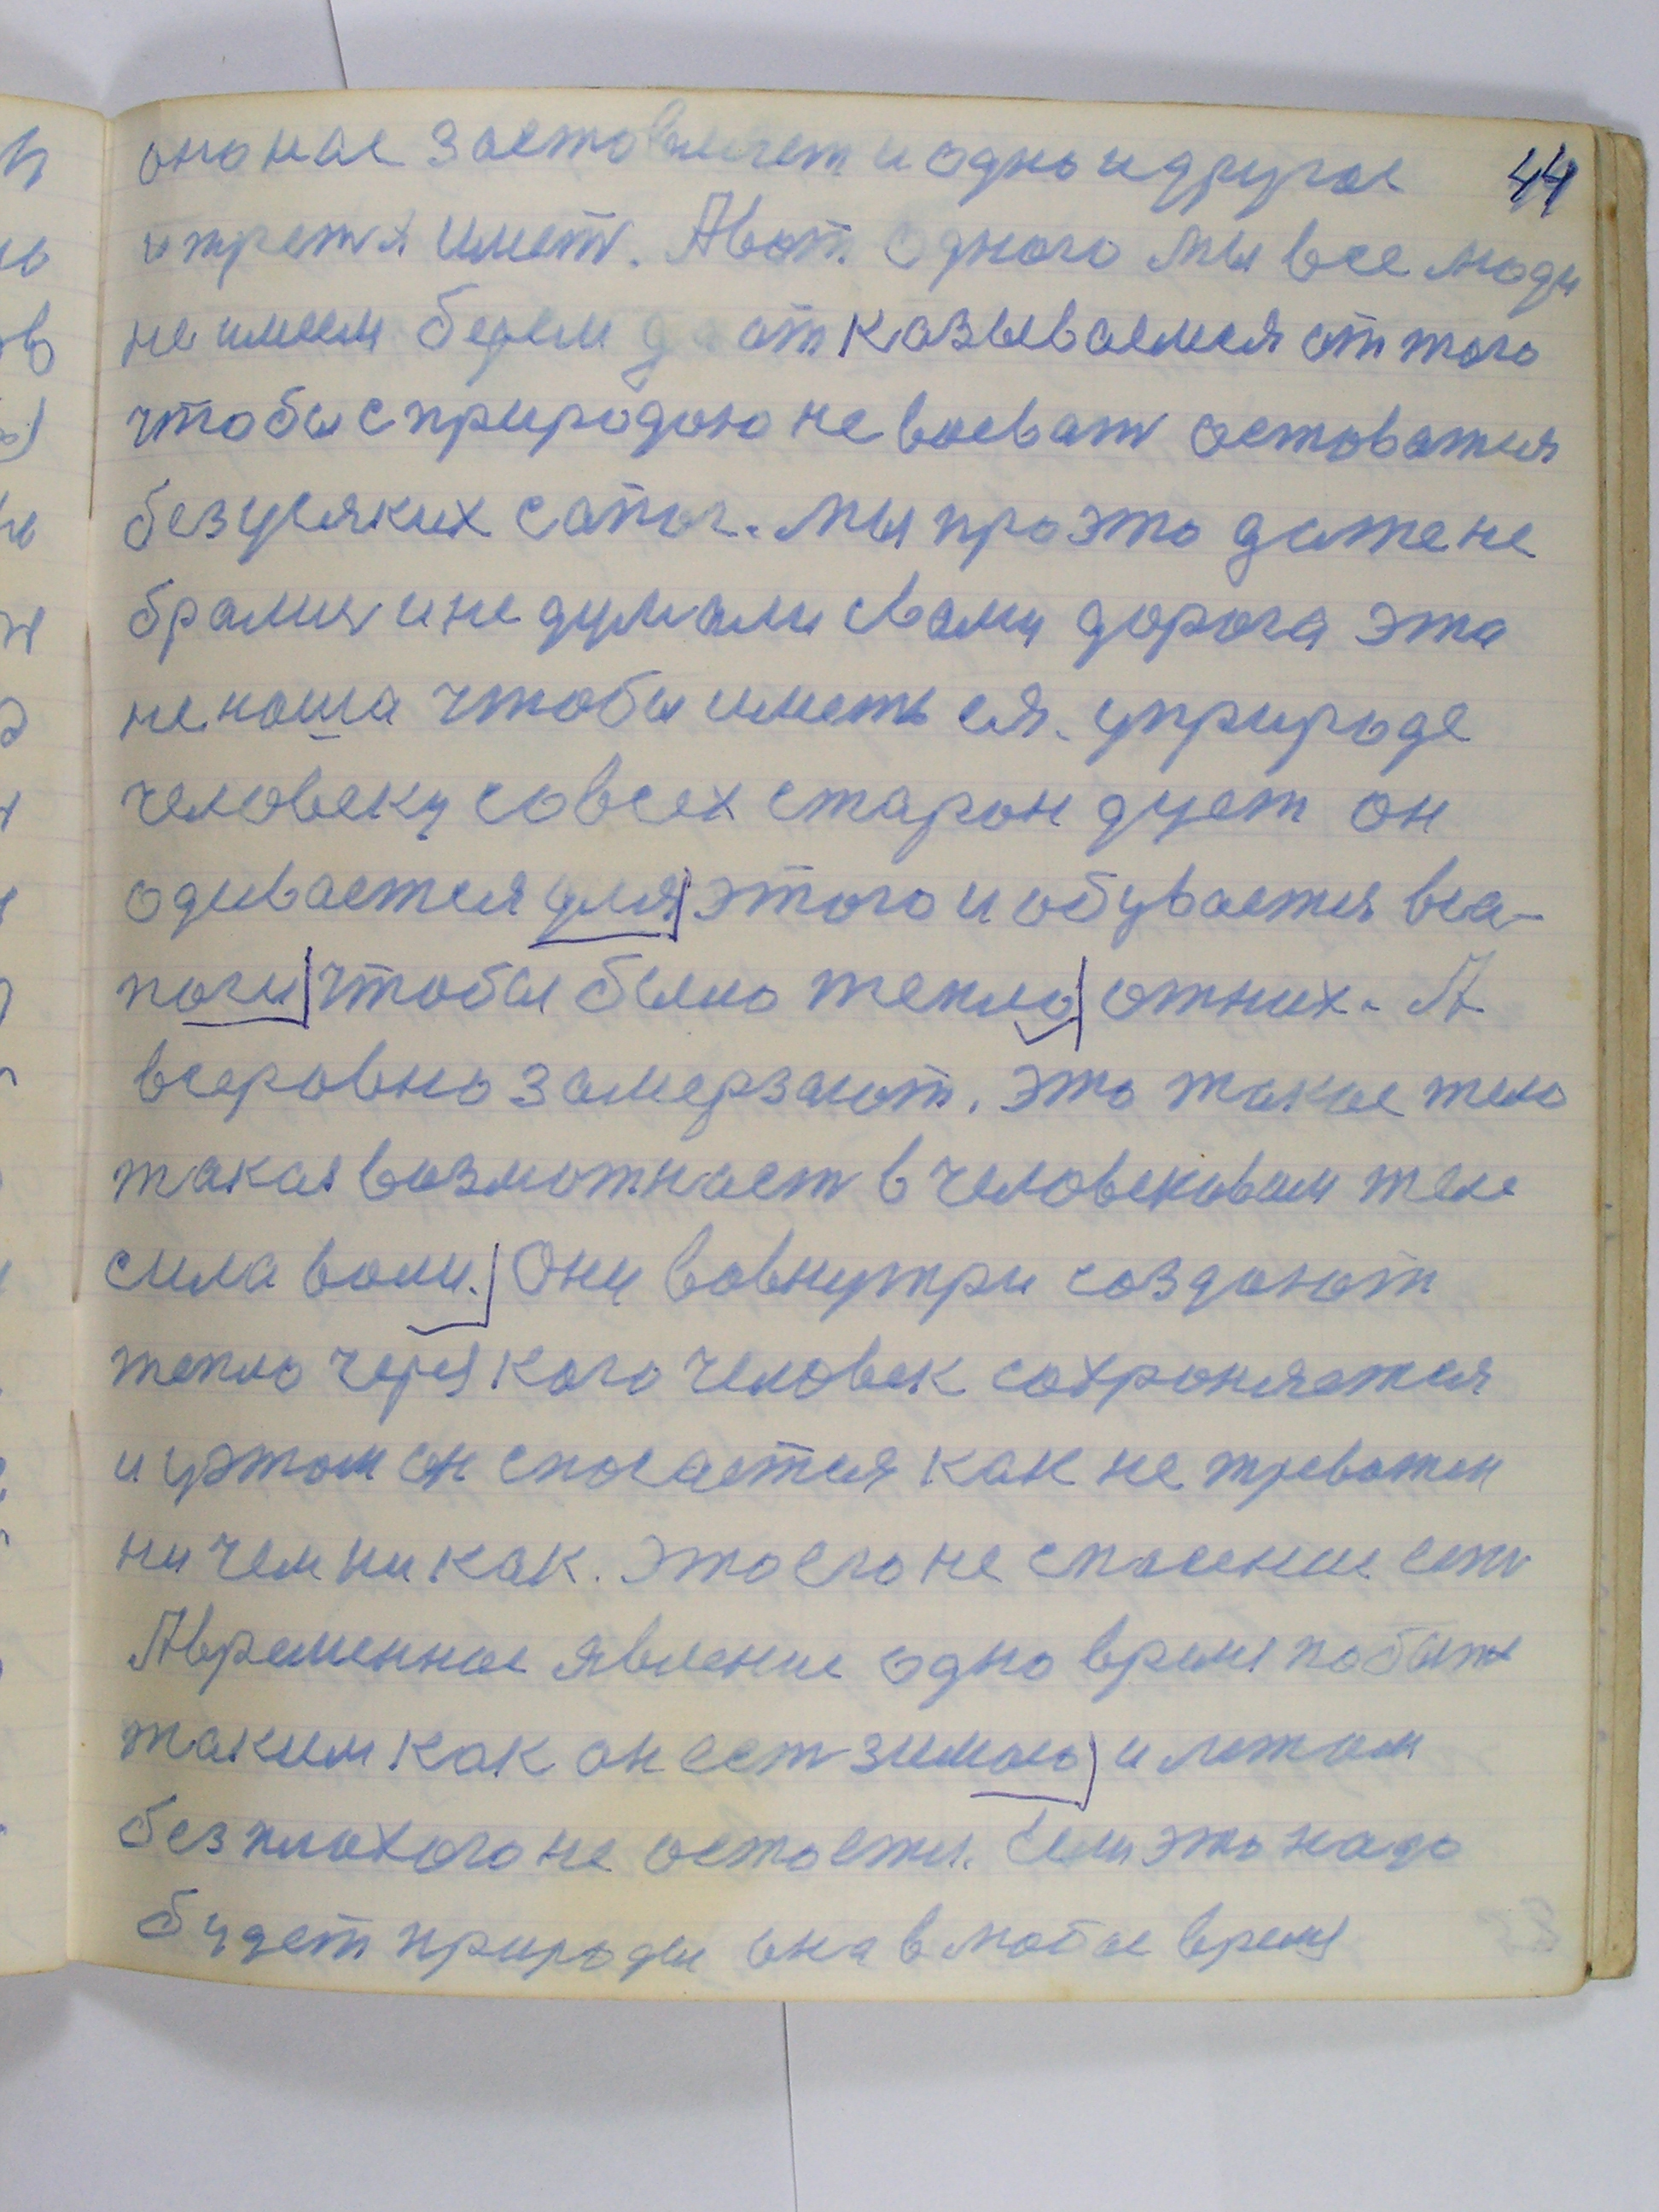 оно нас заставляет и одно и другое
44
и третья имет. А вот одного мы все люди
не имеем берем да отказываемся от того
чтобы с природою не воеват оставатся
без усяких сапог. Мы про это даже не
бралис и не думали свами дорога эта
не наша чтобы иметься. у природе
человеку со всех старон дует он
одивается для этого и обувается в са-
поги чтобы было тепло от них. А
всеровно замерзают. Это такое тело
такая возможност в человековом теле
сила воли. Они вовнутри создают
тепло через кого человек сохроняется
и у этом он спосается как не тревожен
ни чем ни как. Это его не спасение ест
А временное явление одно время побыть
таким как он ест зимою и летом
без плохого не остается. Если это надо
будет природы она в любое время